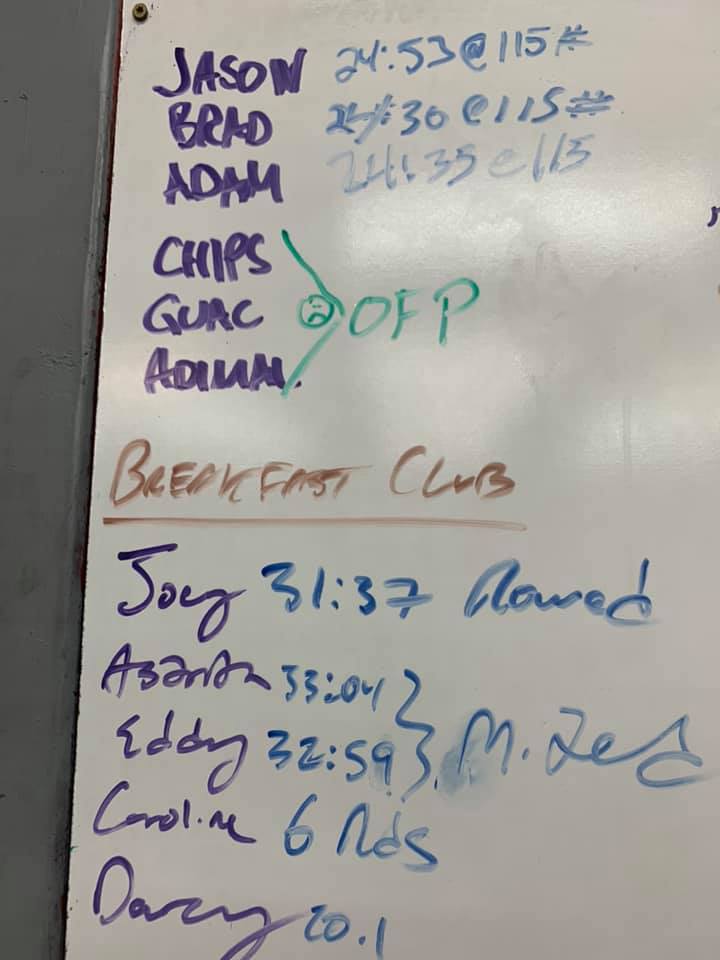 JASON 24:53@115#
BRAD @115#
ADAM 24:35@115
CHIPS
GUAC OFP
BREAKFAST CLUB
Joey 31:37 Rowed
33:04
Eddy 32:59
Caroline 6 Rds
Darcy 20.1